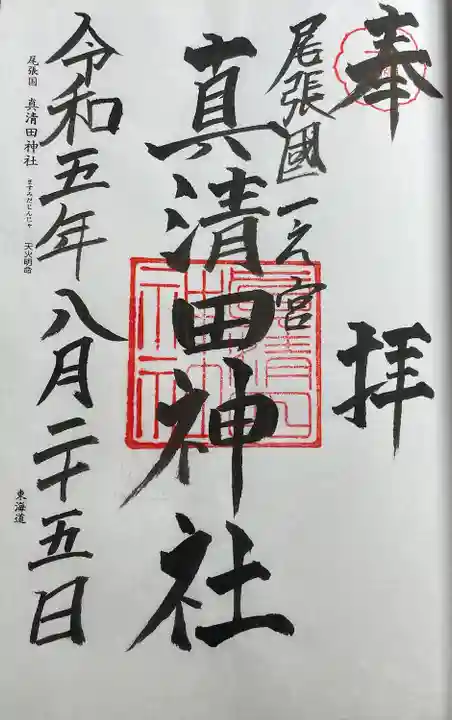 奉拝
尾張國一之宮
真清田神社
令和五年八月二十五日
尾張国 真清田神社 ますみだじんじゃ 天火明命
東海道